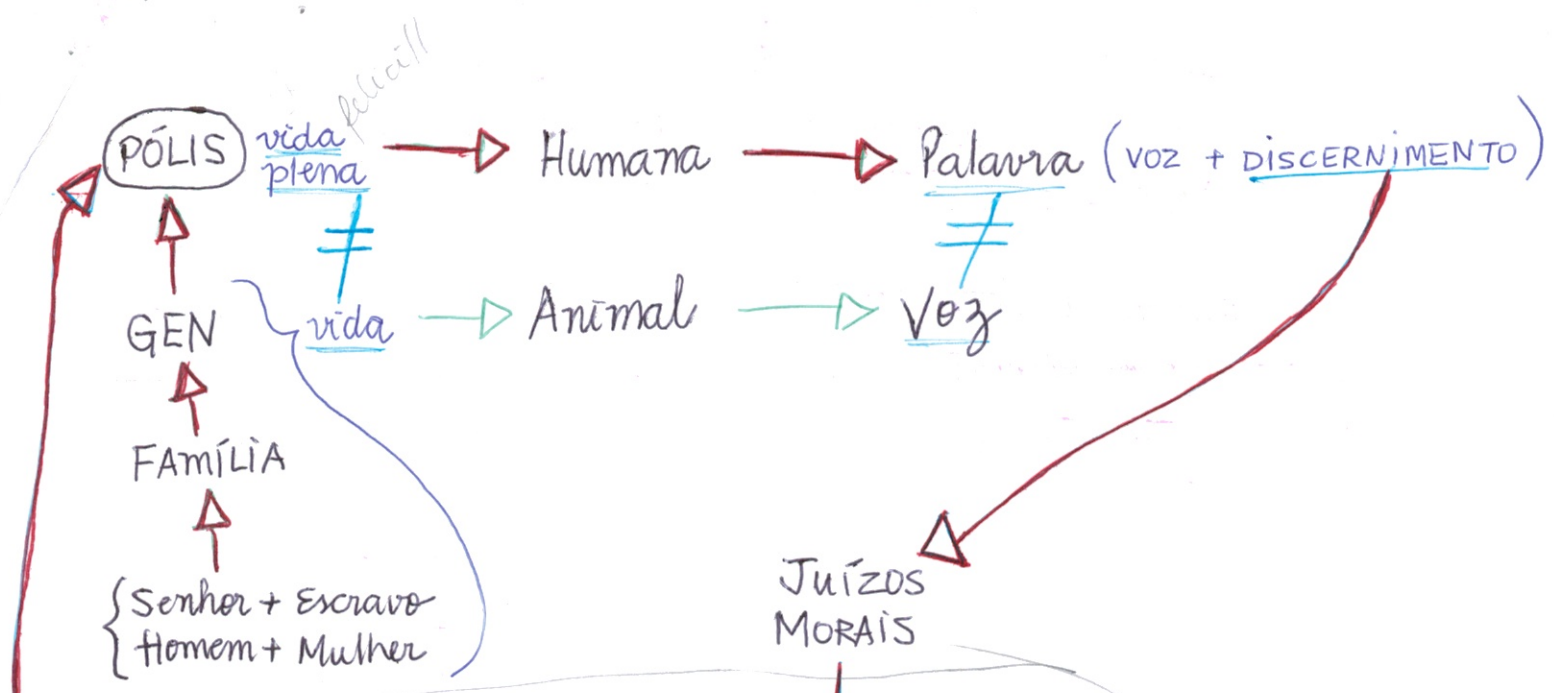 PÓLIS vida plena Humana Palavra (VOZ + DISCERNIMENTO)
GEN vida Animal Voz
FAMÍLIA
Senhor + Escravo
Homem + Mulher
JUÍZOS
MORAIS